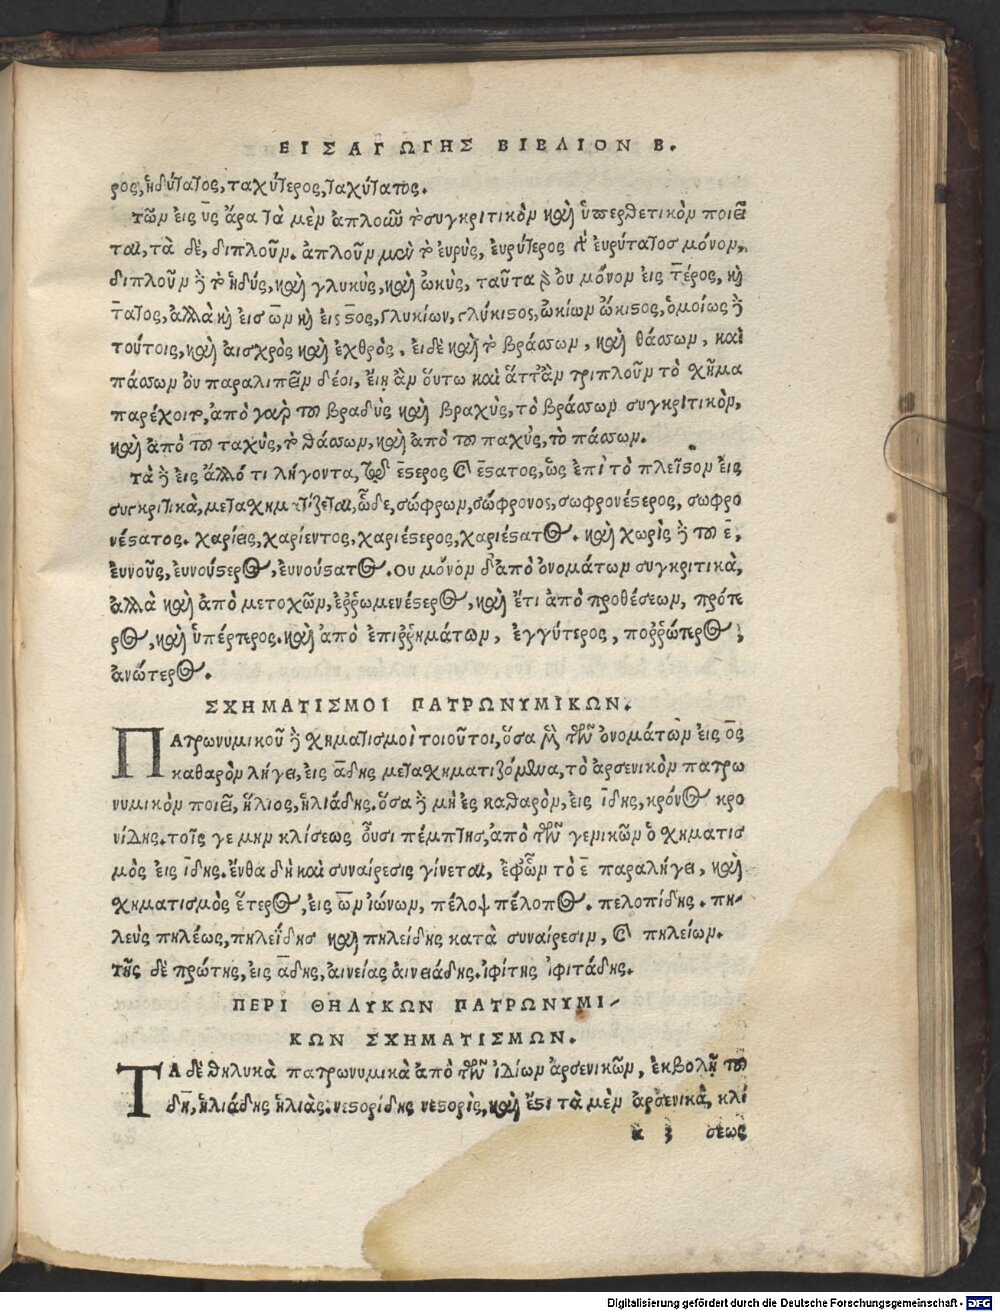 ΕΙΣΑΓΩΓΗΣ ΒΙΒΛΙΟΝ Β.
ρος, ἡδύτατος, ταχύτερος, ταχύτατος.
τῶν εἰς ῡς ἄρα τὰ μὲν ἁπλοῦν τὸ συγκριτικὸν καὶ ὑπερθετικὸν ποιεῖ
ται, τὰ δὲ, διπλοῦν. ἁπλοῦν μὲν τὸ εὐρὺς, εὐρύτερος καὶ εὐρύτατος μόνον,
διπλοῦν δὲ τὸ ἡδύς, καὶ γλυκὺς, καὶ ὠκὺς, ταῦτα γὰρ ὀυ μόνον εἰς τέρος, κὴ
τατος, ἀλλὰ κὴ εις ων κὴ εις ςος, γλυκίων, γλύκιςος, ὠκίων ὤκιςος, ὁμοίως δὲ
τούτοις, καὶ αισχρὸς καὶ ἐχθρὸς, ειδὲ καὶ τὸ βράσσων, καὶ θάσσων, καὶ
πάσσων ὀυ παραλιπεῖν δέοι, ἔιη ἂν ὅυτω καὶ ἄτταν τριπλοῦν τὸ χῆμα
παρέχοιτο, ἀπό γαρ του βραδὺς καὶ βραχὺς, τὸ βράσσων συγκριτικὸν,
καὶ ἀπὸ του ταχύς, τὸ θάσσων, καὶ ἀπὸ του παχὺς, τὸ πάσσων.
τὰ δὲ ἐις ἄλλό τι λήγοντα, διὰ του έςερος καὶ έςατος, ὡς ἐπὶ τὸ πλεῖςον ἐις
συγκριτικὰ, μεταχηματίζεται, ὧδε, σώφρων, σώφρονος, σωφρονέςερος, σωφρο
νέςατος. χαρίεις, χαρίεντος, χαριέςερος, χαριέςατος. καὶ χωρὶς δὲ του ε̄,
ἐυνοῦς, ἐυνούςερος, ἐυνούςατος. Ου μόνον δ' ἀπὸ ὀνομάτων συγκριτικὰ,
ἀλλὰ καὶ ἀπὸ μετοχῶν, ἐῤῥωμενέςερος, καὶ ἔτι ἀπὸ προθέσεων, πρότε
ρος, καὶ ὑπέρτερος. καὶ ἀπὸ ἐπιῤῥημάτων, ἐγγύτερος, ποῤῥώτερος,
ἀνώτερος.
ΣΧΗΜΑΤΙΣΜΟΙ ΠΑΤΡΩΝΥΜΙΚΩΝ.
ΠΑτρωνυμικοῦ δὲ χηματισμοὶ τοιοῦτοι, ὅσα μὲν τῶν ὀνομάτων εἰς ος
καθαρὸν λήγει, εἰς άδης μεταχηματιζόμενα, τὸ ἀρσενικὸν πατρω
νυμικὸν ποιεῖ, ἥλιος, ἡλιάδης. ὅσα δὲ μὴ ἐς καθαρὸν, εἰς ίδης, κρόνος κρο
νίδης. τοῖς γε μην κλίσεως ὖυσι πέμπτης, ἀπὸ τῶν γενικῶν ὁ χηματισ
μὸς εἰς ίδης. ἔνθα δὴ καὶ συναίρεσις γίνεται, ἐφὧν τὸ ε̄ παραλήγει, καὶ
χηματισμὸς ἕτερος, εἰς ων ἰώνων, πέλοψ πέλοπος. πελοπίδης. πη-
λεὺς πηλέως, πηλεΐδης καὶ πηλείδης κατὰ συναίρεσιν, καὶ πηλείων.
τῆς δὲ πρώτης, εἰς άδης, ἀινείας ἀινειάδης. ἰφίτης ἰφιτάδης.
ΠΕΡΙ ΘΗΛΥΚΩΝ ΠΑΤΡΩΝΥΜΙ-
ΚΩΝ ΣΧΗΜΑΤΙΣΜΩΝ.
ΤΑ δὲ θηλυκὰ πατρωνυμικὰ ἀπὸ τῶν ἰδίων ἀρσενικῶν, ἐκβολῇ του
δη, ἡλιάδης ἡλιὰς. νεςορίδης νεςορὶς, καὶ ἔςι τὰ μὲν ἀρσενικὰ, κλί
κ 3 σεως
Digitalisierung gefördert durch die Deutsche Forschungsgemeinschaft - DFG